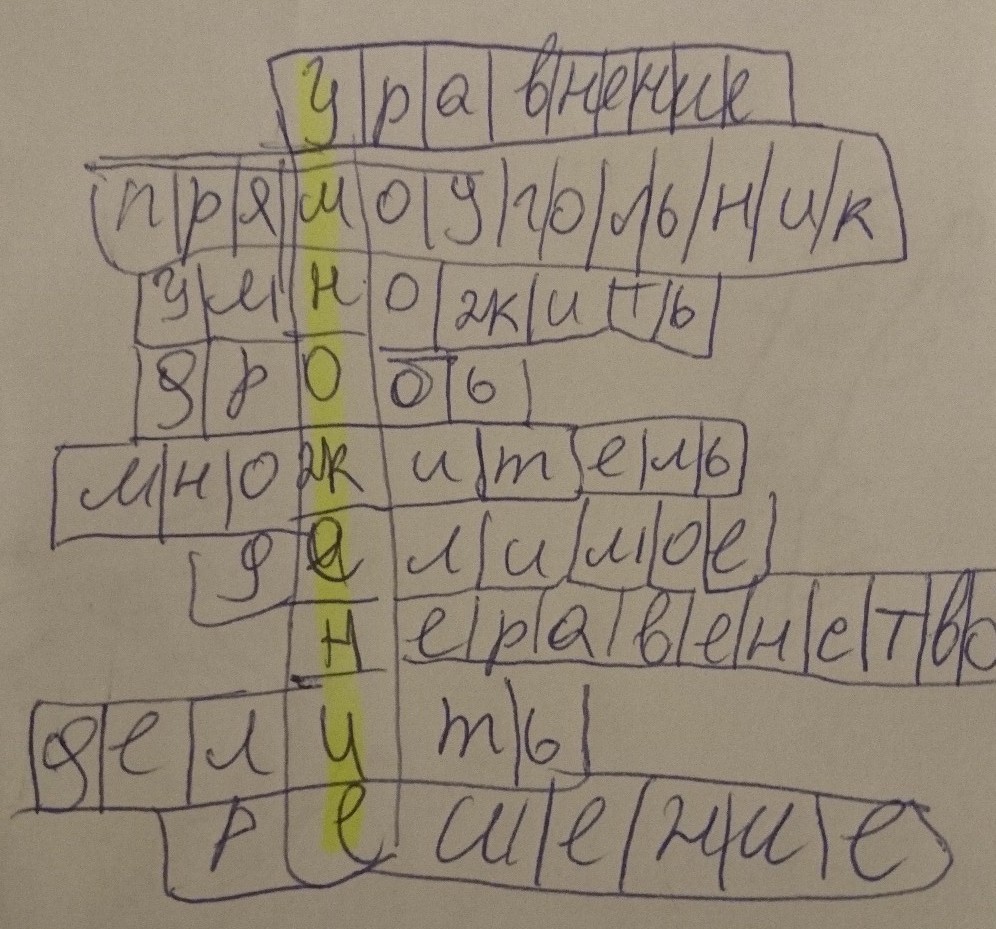 уравнение
прямоугольник
умножить
дробь
множитель
делимое
неравенство
делить
решение